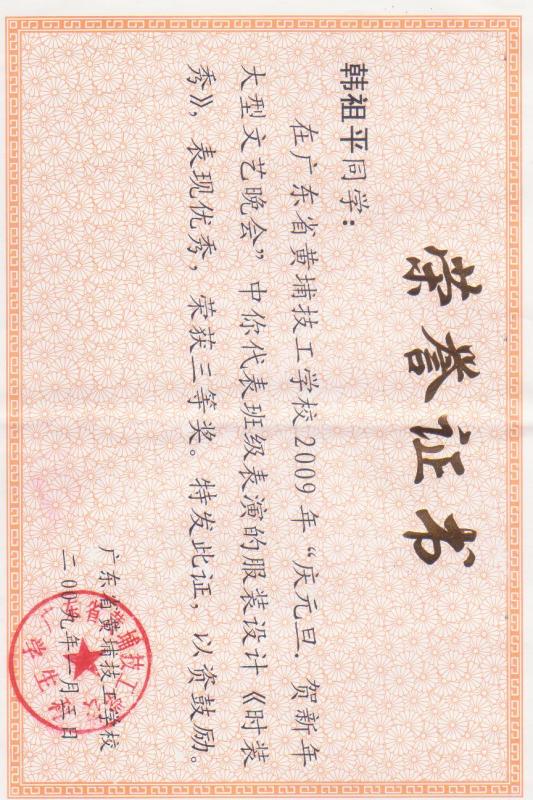 荣誉证书
韩祖平同学：
在广东省黄埔技工学校2009年“庆元旦．贺新年
大型文艺晚会”中你代表班级表演的服装设计《时装
秀》，表现优秀，荣获三等奖。特发此证，以资鼓励。
广东省黄埔技工学校
二00九年一月三日